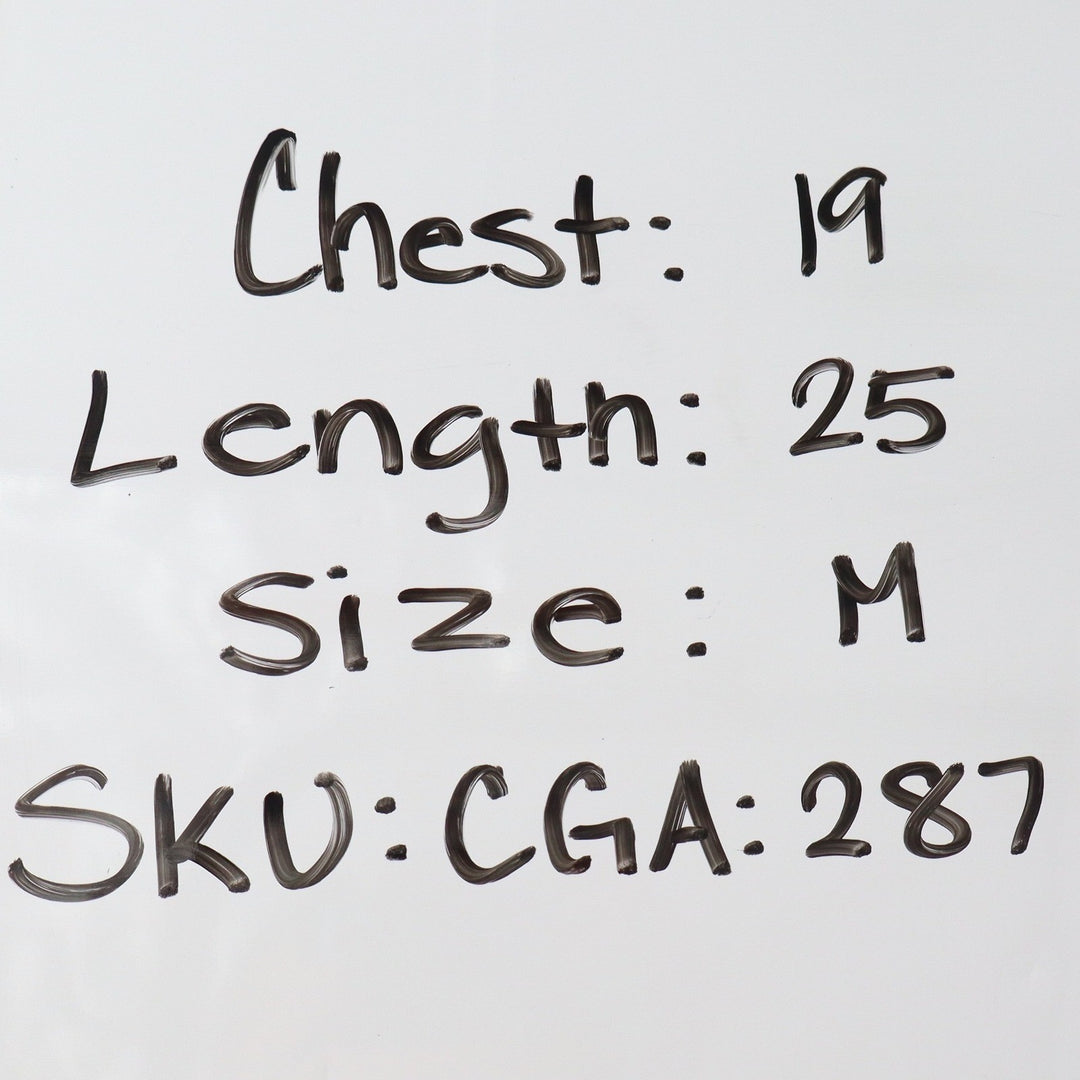 Chest: 19
Length: 25
Size: M
SKU: CGA: 287